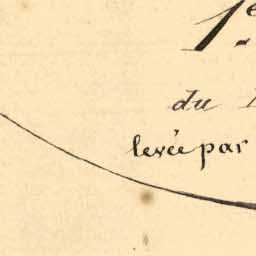 1e
du
levée par